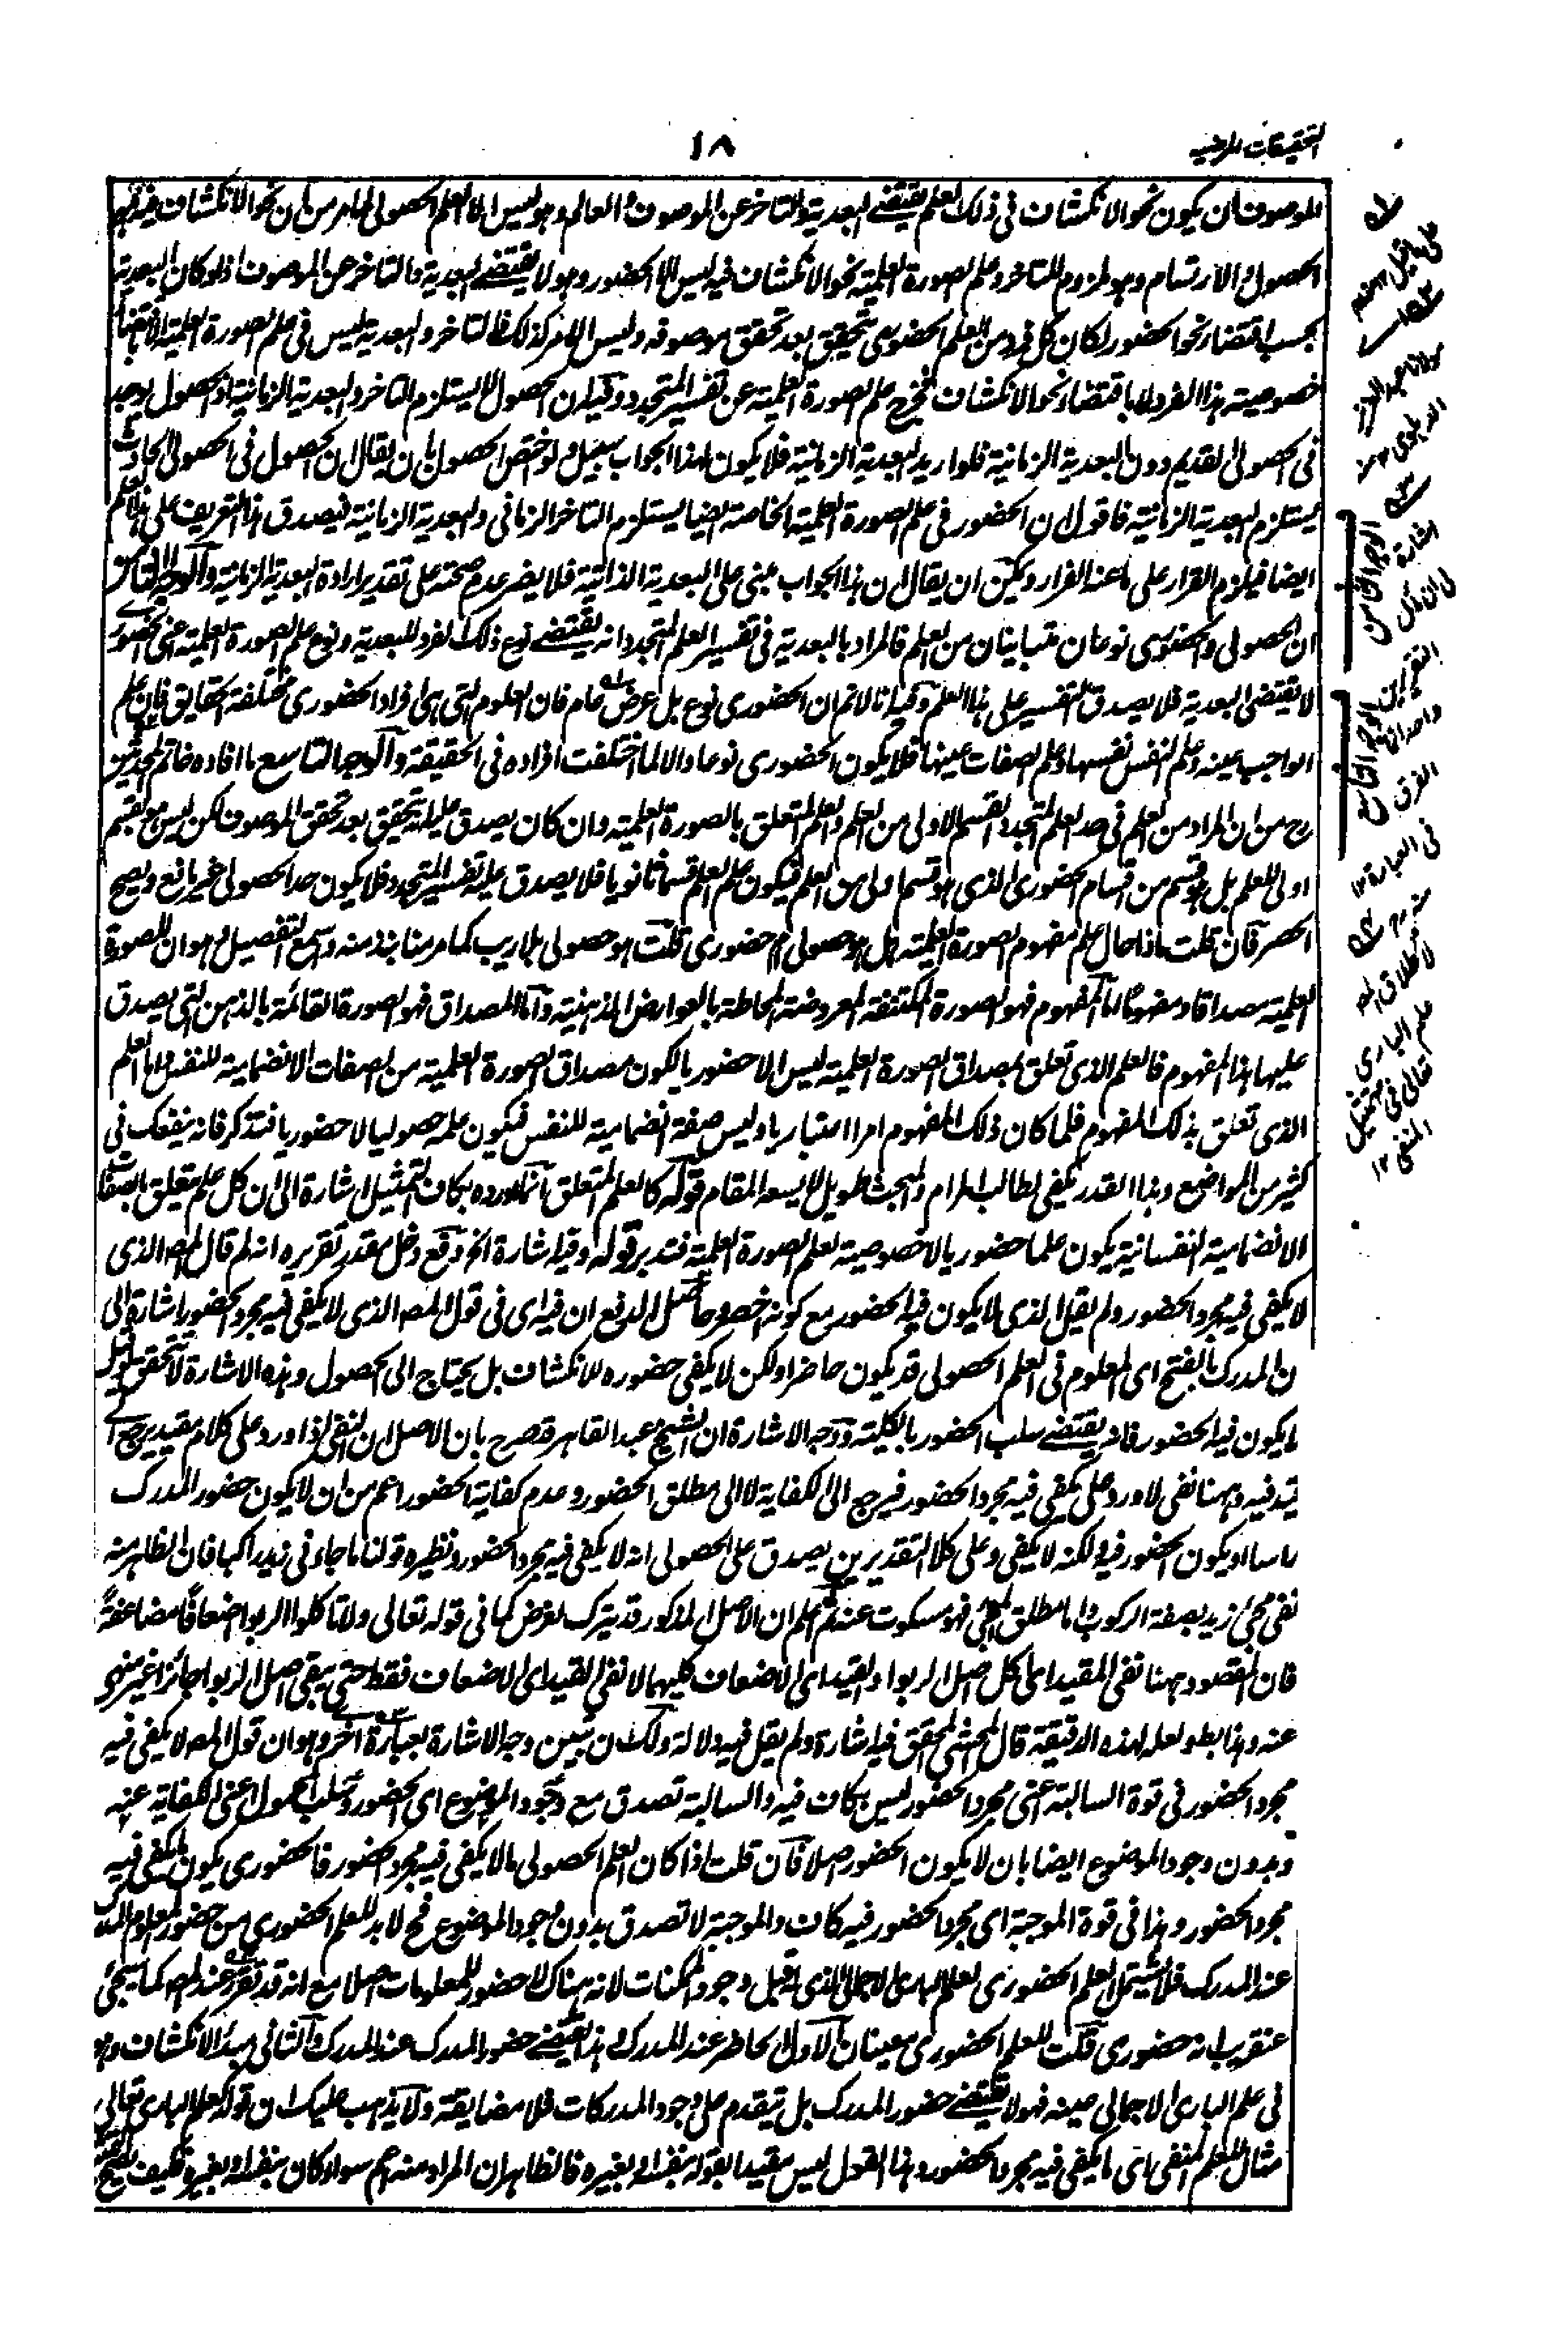 التحقيقات المرضيه
١٨
الموصوف ان يكون نحو الانكشاف فى ذلك العلم يقتضى البعدية والتاخر عن الموصوف اى العالم وهو ليس الا العلم الحصولى لما مر من ان نحو الانكشاف فيه هو
الحصول والارتسام وهو ملزوم للتاخر وعلم الصورة العلمية نحو الانكشاف فيه ليس الا الحضور وهو لا يقتضى البعدية والتاخر عن الموصوف اذ لو كان البعدية
بحسب اقتضاء نحو الحضور لكان كل فرد من العلم الحضورى تحقيق بعد تحقق موصوفه وليس الامر كذلك فالتاخر والبعدية ليس فى علم الصورة العلمية الا باقتضاء
خصوصيته هذا الفرد لا باقتضاء نحو الانكشاف فخرج علم الصورة العلمية عن تفسير المتجدد وفيه ان الحصول لا يستلزم التاخر والبعدية الزمانية اذ الحصول يوجد
فى الحصولى القديم دون البعدية الزمانية فلو اريد البعدية الزمانية فلا يكون لهذا الجواب سبيل ولو خص الحصول بان يقال ان الحصول فى الحصولى الحادث
يستلزم البعدية الزمانية فاقول ان الحضور فى علم الصورة العلمية الخاصة ايضا يستلزم التاخر الزمانى والبعدية الزمانية فيصدق هذا التعريف على هذا العلم
ايضا فيلزم القرار على ما عنه الفرار ويمكن ان يقال ان هذا الجواب مبنى على البعدية الذاتية فلا يضر عدم صحته على تقدير ارادة البعدية الزمانية والوجه الثامن
ان الحصولى والحضورى نوعان متباينان من العلم فالمراد بالبعدية فى تفسير العلم المتجدد انه يقتضى نوع ذلك الفرد للبعدية ونوع علم الصورة العلمية اعنى الحضورى
لا يقتضى البعدية فلا يصدق التفسير على هذا العلم وفيه انا لا نم ان الحضورى نوع بل عرض عام فان العلوم التى هى افراد الحضورى مختلفة الحقايق فان علم
الواجب عينه وعلم النفس نفسها وعلم الصفات عينها فلا يكون الحضورى نوعا والا لما اختلفت افراده فى الحقيقة والوجه التاسع ما افاده خاتم المحدثين
رح من ان المراد من العلم فى حد العلم المتجدد القسم الاولى من العلم والعلم المتعلق بالصورة العلمية وان كان يصدق عليه انه يتحقق بعد تحقق الموصوف لكن ليس هو بقسم
اولى للعلم بل هو قسم من اقسام الحضورى الذى هو قسم اولى من العلم فيكون علم العلم قسما ثانويا فلا يصدق عليه تفسير المتجدد فلا يكون حد الحصولى غير مانع ويصح
الحصر فان قلت ماذا حال علم مفهوم الصورة العلمية هل هو حصولى ام حضورى قلت هو حصولى بلا ريب كما مر منا نبذ منه واسمع التفصيل وهو ان للصورة
العلمية مصداقا ومفهوما اما المفهوم فهو الصورة المكتنفة المعروضة المحاطة بالعوارض الذهنية واما المصداق فهو الصورة القائمة بالذهن التى يصدق
عليها هذا المفهوم فالعلم الذى تعلق بمصداق الصورة العلمية ليس الا حضوريا لكون مصداق الصورة العلمية من الصفات الانضمامية للنفس واما العلم
الذى تعلق بذلك المفهوم فلما كان ذلك المفهوم امرا اعتباريا وليس صفة انضمامية للنفس فيكون علمه حصوليا لا حضوريا فتذكر فانه ينفعك فى
كثير من المواضع وهذا القدر يكفى لطالب المرام والبحث طويل لا يسعه المقام قوله كالعلم المتعلق انما اورده بكاف التمثيل اشارة الى ان كل علم يتعلق بالصفات
الانضمامية النفسانية يكون علما حضوريا لا خصوصية لعلم الصورة العلمية فتدبر قوله وفيه اشارة الخ دفع دخل مقدر تقريره انه لم قال المصه الذى
لا يكفى فيه مجرد الحضور ولم يقل الذى لا يكون فيه الحضور مع كونه اخصر وحاصل الدفع ان فيه اى فى قول المصه الذى لا يكفى فيه مجرد الحضور اشارة الى
ان المدرك بالفتح اى المعلوم فى العلم الحصولى قد يكون حاضرا ولكن لا يكفى حضوره للانكشاف بل يحتاج الى الحصول وهذه الاشارة لا تتحقق لو قيل
لا يكون فيه الحضور فانه يقتضى سلب الحضور بالكلية ووجه الاشارة ان الشيخ عبد القاهر قد صرح بان الاصل ان النفى اذا ورد على كلام مقيد يرجع الى
قيد فيه وههنا نفى لا ورد على يكفى فيه مجرد الحضور فيرجع الى الكفاية لا الى مطلق الحضور وعدم كفاية الحضور اعم من ان لا يكون حضور المدرك
راسا او يكون الحضور فيه ولكنه لا يكفى وعلى كلا التقديرين يصدق على الحصولى انه لا يكفى فيه مجرد الحضور ونظيره قولنا ما جاءنى زيد راكبا فان الظاهر منه
نفى مجئ زيد بصفة الركوب واما مطلق المجئ فهو مسكوت عنه ثم اعلم ان الاصل المذكور قد يترك لغرض كما فى قوله تعالى ولا تاكلوا الربوا اضعافا مضاعفة
فان المقصود ههنا نفى المقيد اى اكل اصل الربوا والقيد اى الاضعاف كليهما لا نفى القيد اى الاضعاف فقط حتى يبقى اصل الربوا جائزا غير منهى
عنه وهذا بطو لعله لهذه الدقيقة قال المحشى المحقق فيه اشارة ولم يقل فيه دلالة ولك ان تبين وجه الاشارة بعبارة اخرى وهو ان قول المصه لا يكفى فيه
مجرد الحضور فى قوة السالبة اعنى مجرد الحضور ليس بكاف فيه والسالبة تصدق مع وجود الموضوع اى الحضور وسلب المحمول اعنى الكفاية عنه
وبدون وجود الموضوع ايضا بان لا يكون الحضور اصلا فان قلت اذا كان العلم الحصولى ما لا يكفى فيه مجرد الحضور فالحضورى يكون ما يكفى فيه
مجرد الحضور وهذا فى قوة الموجبة اى مجرد الحضور فيه كاف والموجبة لا تصدق بدون وجود الموضوع فح لا بد للعلم الحضورى من حضور المعلوم المدرك
عند المدرك فلا يشتمل العلم الحضورى لعلم البارى الاجمالى الذى هو قبل وجود الممكنات لانه هناك لا حضور للمعلومات اصلا مع انه قد تقرر عند المصه كما سيجئ
عنقريب انه حضورى قلت للعلم الحضورى معنيان الاول الحاضر عند المدرك وهذا يقتضى حضور المدرك عند المدرك والثانى مبدأ الانكشاف وهو
فى علم البارى الاجمالى عينه فهو لا يقتضى حضور المدرك بل يتقدم على وجود المدركات فلا مضايقة ولا يذهب عليك ان قوله كعلم البارى تعالى
مثال للعلم المنفى اى ما يكفى فيه مجرد الحضور وهذا القول ليس مقيدا بقوله بنفسه او بغيره فالظاهر ان المراد منه اعم سواء كان بنفسه او بغيره فكيف يصح
مولانا عبد العزيز
الدهلوى ١٢
الوجه الثامن
اشارة
الى ان مآل
التقريرين
واحد انما
الفرق
فى العبارة ١٢
الوجه التاسع
لاطلاق
علم البارى
تعالى فى تمثيل
المنفى ١٢